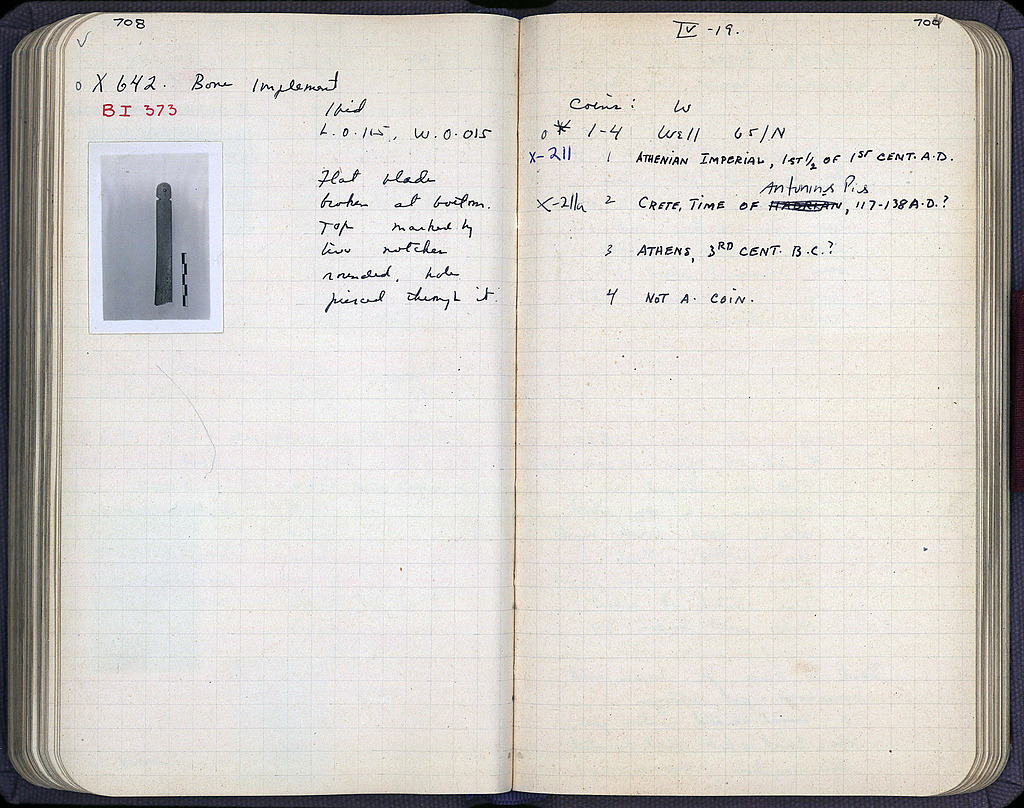 708
√
o X 642. Bone Implement
BI 373
Ibid
L. 0.115, W. 0.015
Flat blade
broken at bottom.
Top marked by
two notches
rounded, hole
pierced through it.
IV -19.
709
Coins: W
o * 1-4 Well 65/N
X-211 1 ATHENIAN IMPERIAL, 1ST 1/2 OF 1ST CENT. A.D.
Antoninus Pius
X-211a 2 CRETE, TIME OF HADRIAN, 117-138 A.D.?
3 ATHENS, 3RD CENT. B.C.?
4 NOT A COIN.